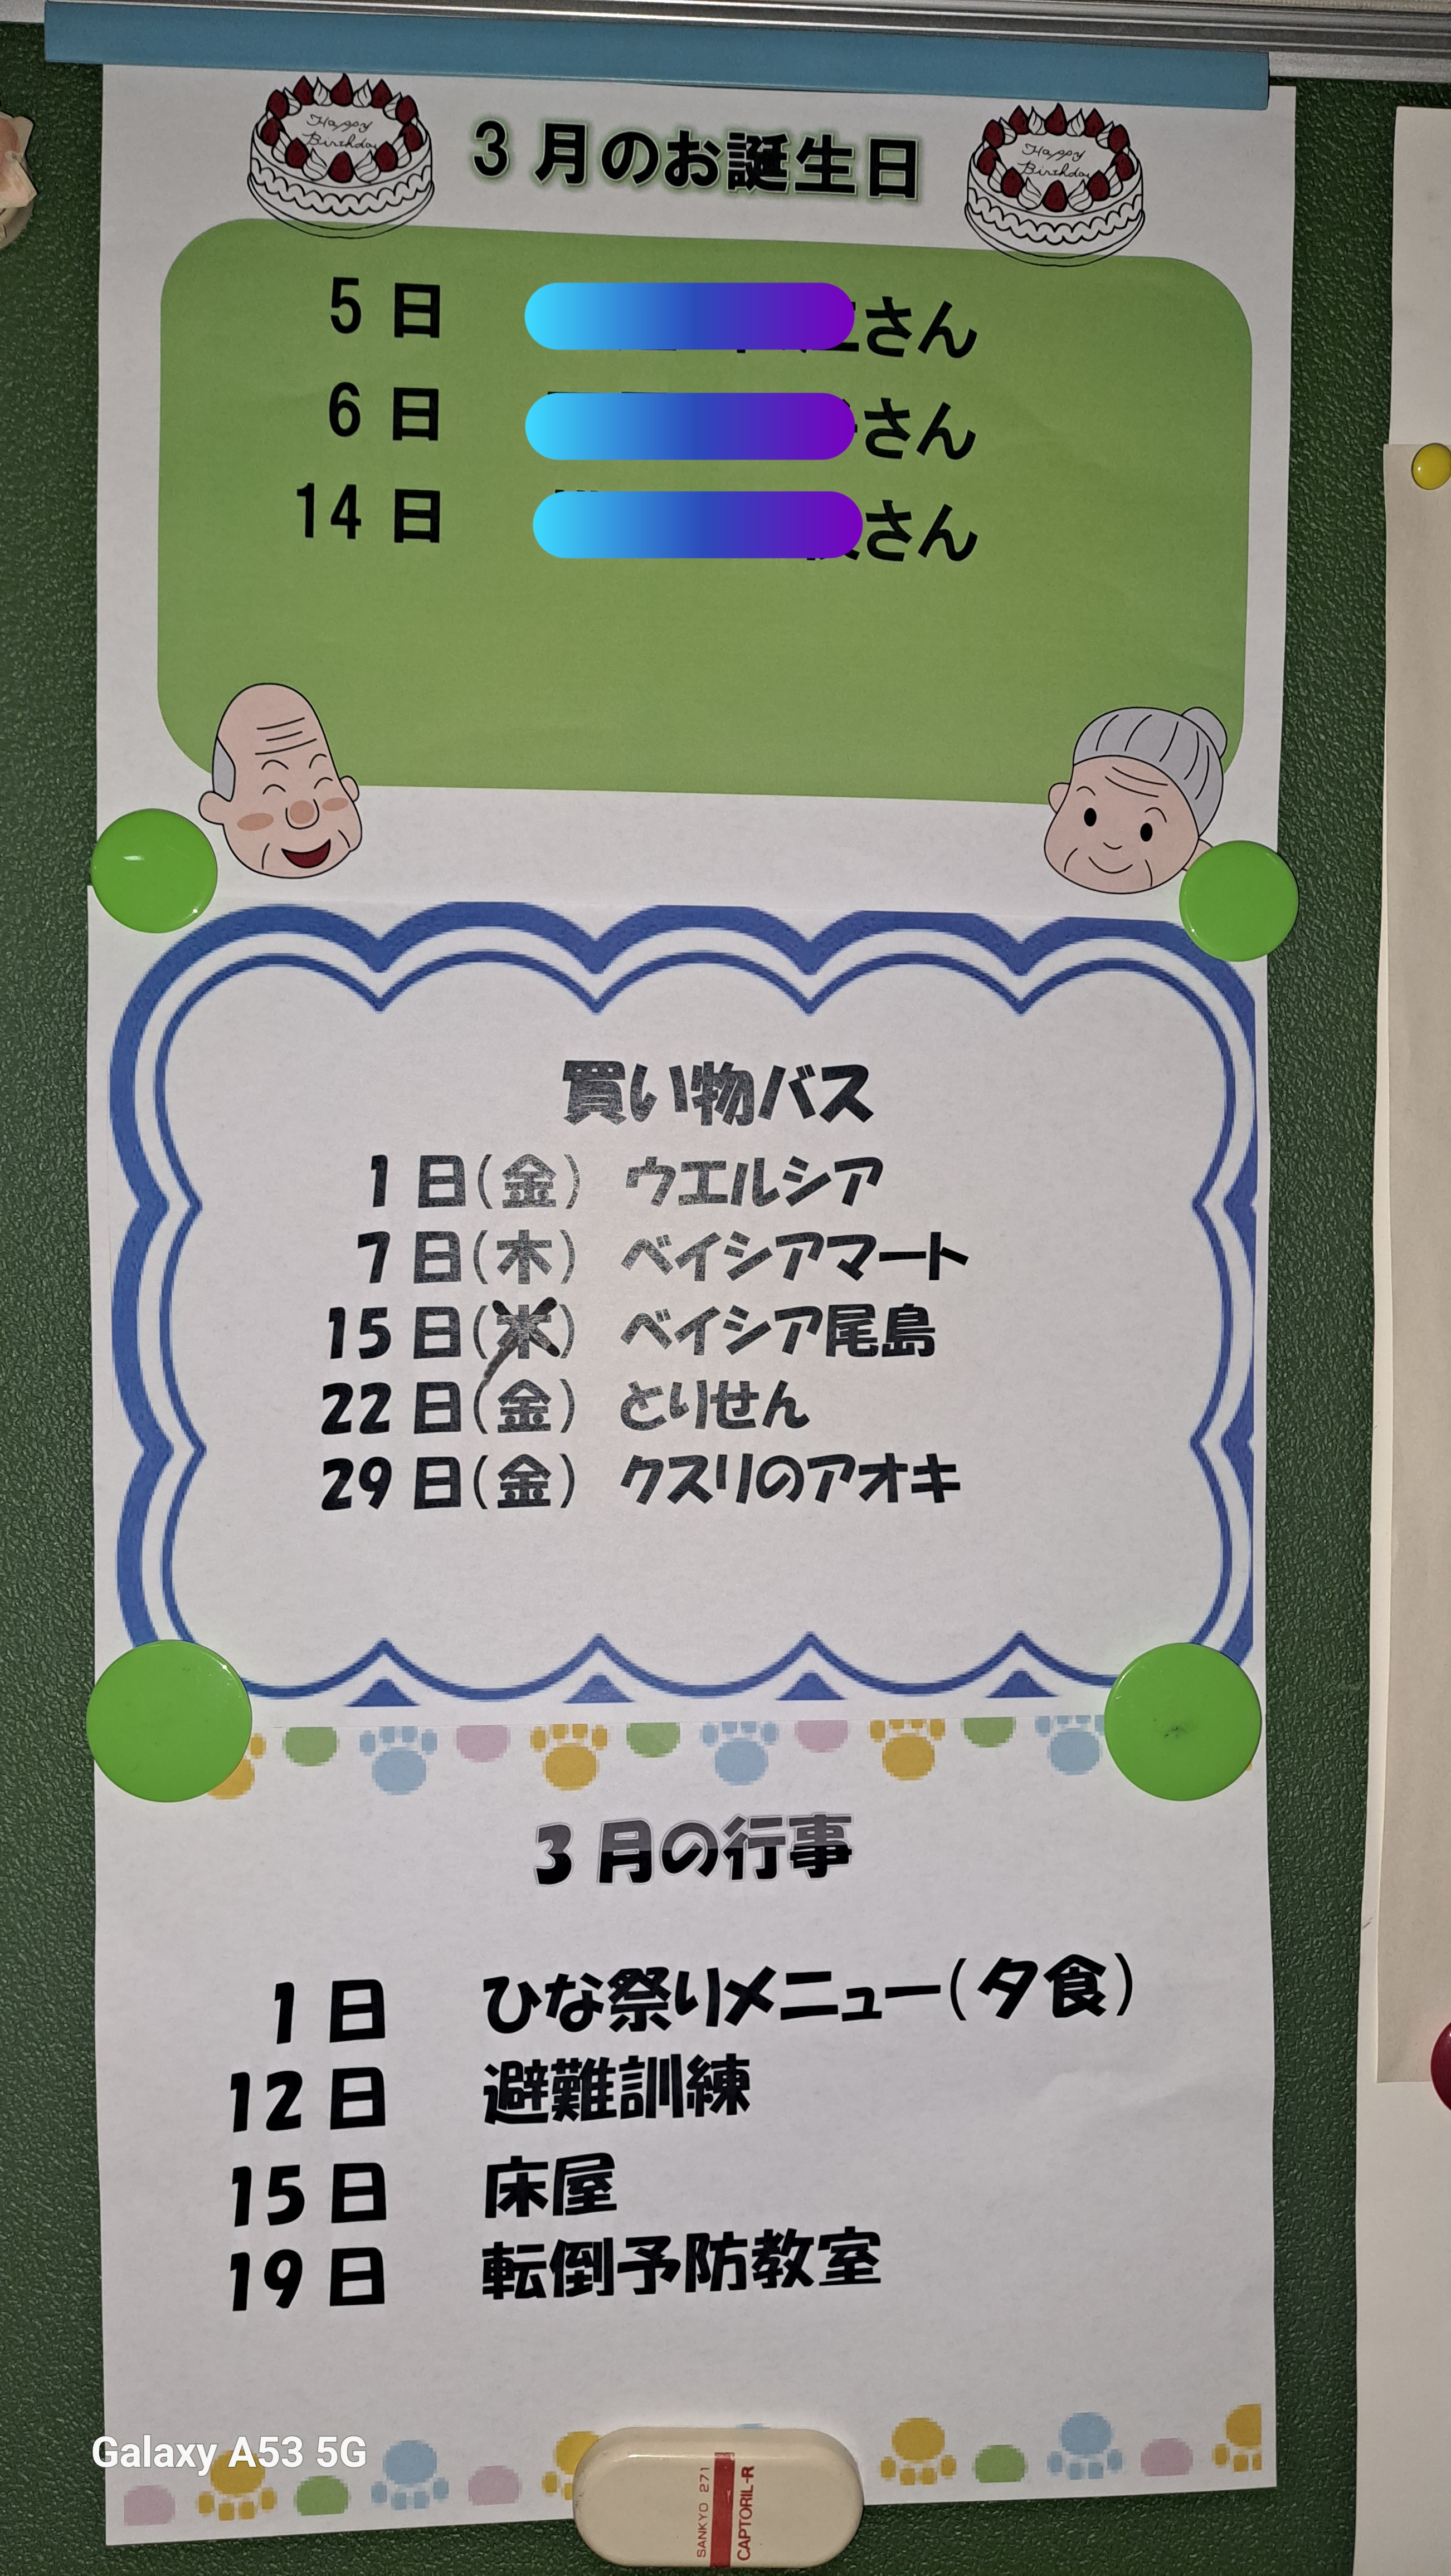 Happy Birthday
3月のお誕生日
Happy Birthday
5日 さん
6日 さん
14日 さん
買い物バス
1日(金) ウエルシア
7日(木) ベイシアマート
15日( ) ベイシア尾島
22日(金) とりせん
29日(金) クスリのアオキ
3月の行事
1日 ひな祭りメニュー(夕食)
12日 避難訓練
15日 床屋
19日 転倒予防教室
SANKYO 271
CAPTORIL-R
Galaxy A53 5G